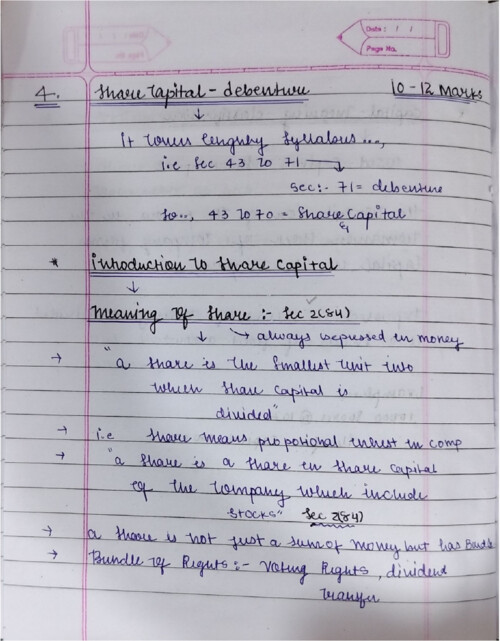 Date : / /
Page No.
4. Share Capital - debenture 10-12 Marks
It covers lenghby Syllabus...,
i.e Sec 43 To 71
Sec:- 71 = debenture
So.., 43 To 70 = Share Capital
* Introduction To Share Capital
Meaning Of Share :- Sec 2(84)
always expressed in money
→ "a share is the Smallest Unit into
which Share Capital is
divided"
→ i.e Share means propotional intrest in comp
→ "a Share is a share in Share Capital
Of The Company which include
Stocks" Sec 2(84)
→ a Share is not just a sum of money but has
→ Bundle Of Rights :- Voting Rights, divident
Transfer